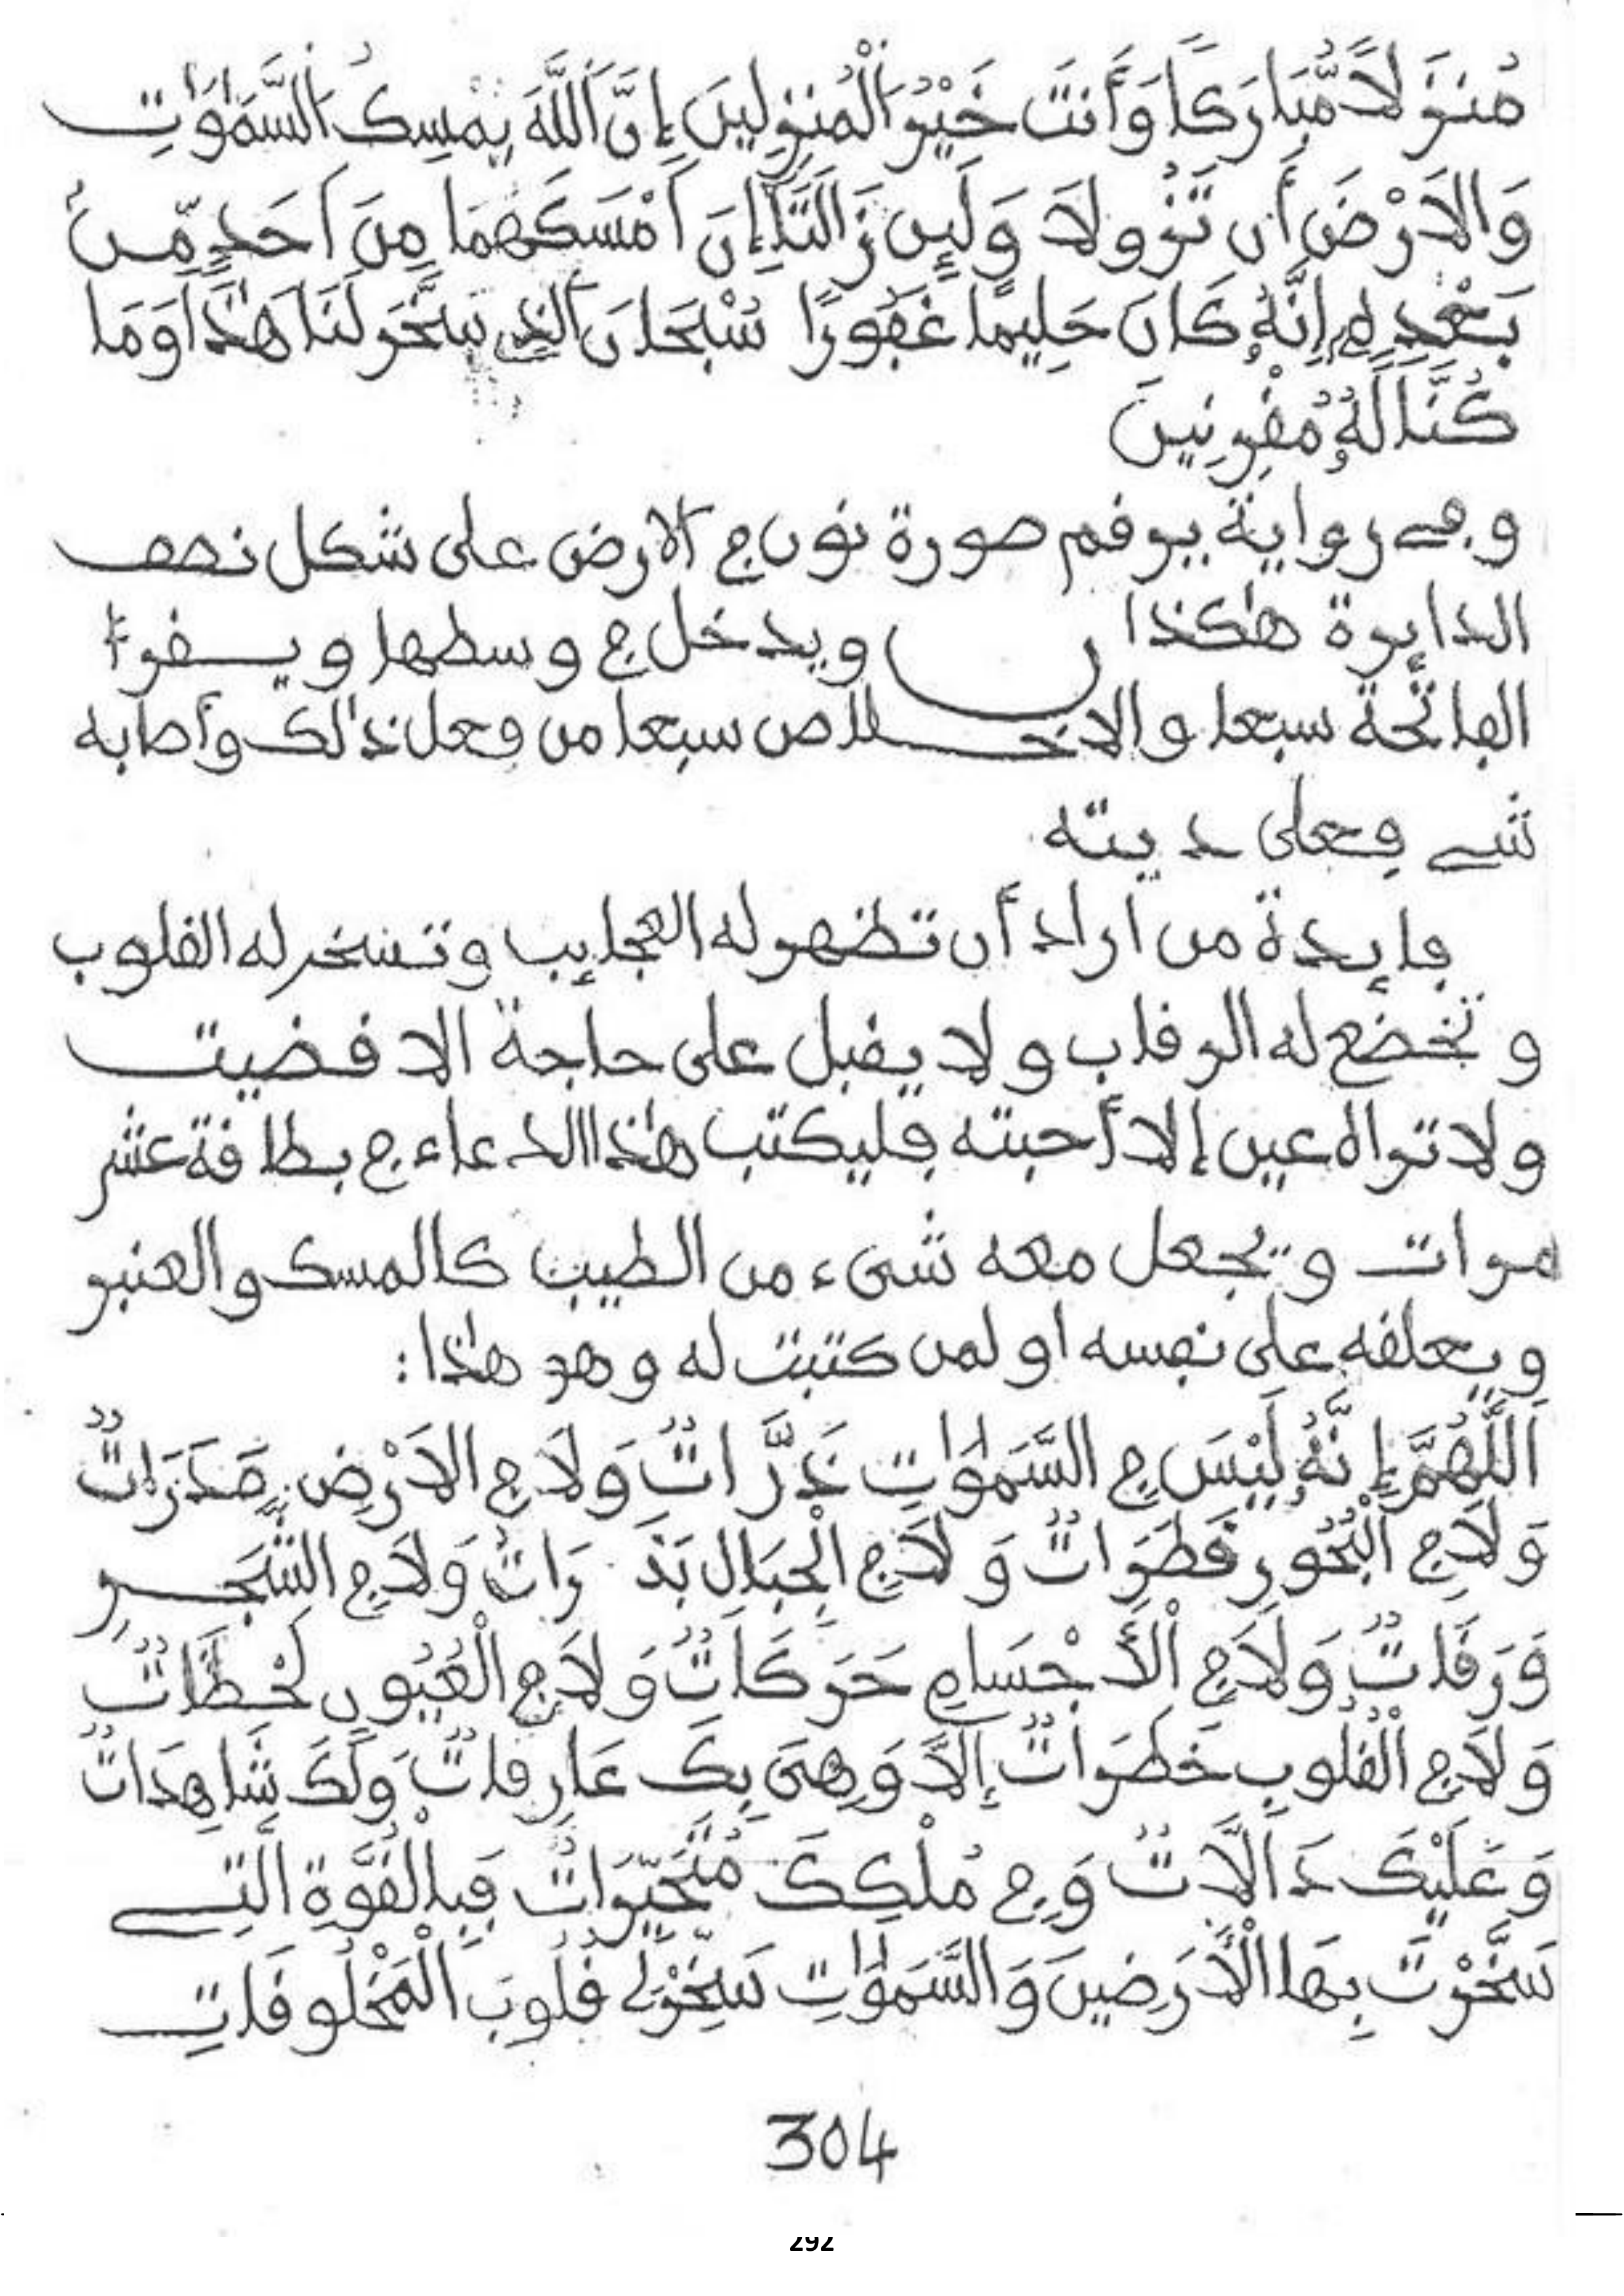 مُنزَلاً مُّبَارَكاً وَأَنتَ خَيْرُ الْمُنزِلِينَ إِنَّ اَللَّهَ يُمْسِكُ السَّمَٰوَٰتِ
وَالاَرْضَ أَن تَزُولاَ وَلَئِن زَالَتَا إِنَ اَمْسَكَهُمَا مِنَ اَحَدٍ مِّنۢ
بَعْدِهِ إِنَّهُ كَانَ حَلِيماً غَفُورًا سُبْحَانَ اَلذِے سَخَّرَ لَنَا هَٰذَا وَمَا
كُنَّا لَهُ مُفْرِنِينَ
وفے رواية يرقم صورة نون في الارض على شكل نصف
الدايرة هٰكذا ن ويدخل في وسطها ويقرؤ
الفاتحة سبعا والاخلاص سبعا من فعل ذٰلك وأصابه
شے فعلى ديته
فايدة من اراد أن تظهر له العجايب وتسخر له القلوب
وتخضع له الرقاب ولا يقبل على حاجة الا قضيت
ولا تراه عين إلا أحبته فليكتب هٰذا الدعاء في بطاقة عشر
مرات ويجعل معه شىء من الطيب كالمسك والعنبر
ويعلقه على نفسه او لمن كتبت له وهو هٰذا:
اَللَّهُمَّ إِنَّهُ لَيْسَ فِي السَّمَٰوَٰتِ ذَرَّاتٌ وَلاَ فِي الاَرْضِ مَدَرَاتٌ
وَلاَ فِي اَلْبُحُورِ قَطَرَاتٌ وَلاَ فِي الْجِبَالِ بَذَرَاتٌ وَلاَ فِي الشَّجَرِ
وَرَقَاتٌ وَلاَ فِي اْلأَجْسَامِ حَرَكَاتٌ وَلاَ فِي الْعُيُونِ لَحْظَاتٌ
وَلاَ فِي الْقُلُوبِ خَطَرَاتٌ إِلاَّ وَهِىَ بِكَ عَارِفَاتٌ وَلَكَ شَاهِدَاتٌ
وَعَلَيْكَ دَالاَّتٌ وَفِي مُلْكِكَ مُتَحَيِّرَاتٌ فَبِالْقُوَّةِ الَّتِے
سَخَّرْتَ بِهَا اْلأَرَضِينَ وَالسَّمَٰوَٰتِ سَخِّرْ لِے قُلُوبَ الْمَخْلُوقَاتِ
304
292